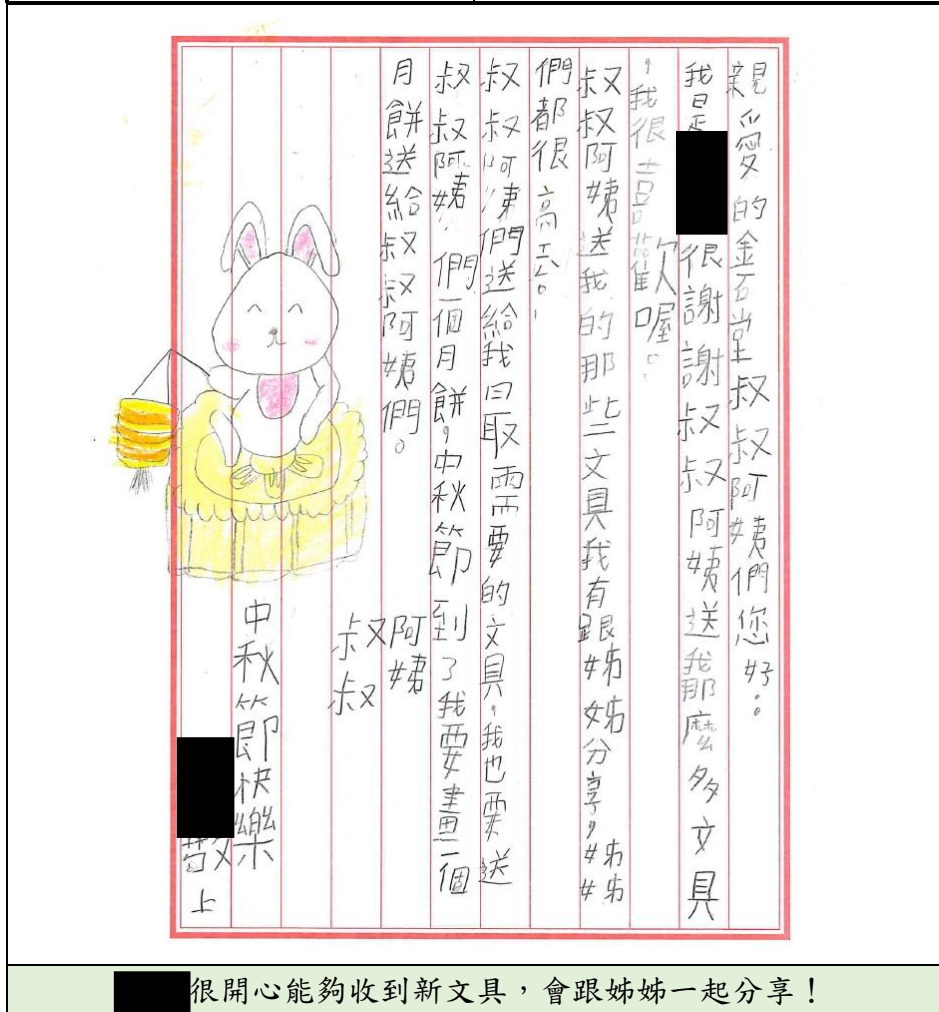 親愛的金石堂叔叔阿姨們您好：
我是 很謝謝叔叔阿姨送我那麼多文具
，我很喜歡喔。
叔叔阿姨送我的那些文具我有跟姊姊分享，姊姊
們都很高兴。
叔叔阿姨們送給我最需要的文具，我也要送
叔叔阿姨們一個月餅，中秋節到了我要畫一個
月餅送給叔叔阿姨們。
阿姨
叔叔
中秋節快樂
敬上
很開心能夠收到新文具，會跟姊姊一起分享！